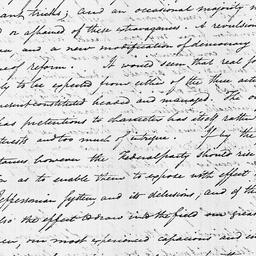 tricks; and an occasional majority
or afraid of these extravagances. A revulsion
and a new modification of democracy
of reform. It would seem that real
to be expected from either of the three
constituted headed and managed. The
has pretentions to character has itself rather
and too much of intrigue. If by the
however the Federal party should rise
as to enable them to expose with effect
Jeffersonian System and its delusions, and of the
the effect to draw into the field our
our most experienced capacious and